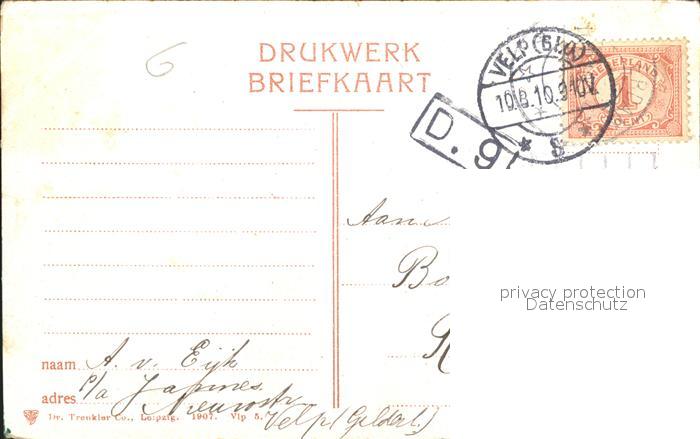 6
DRUKWERK
BRIEFKAART
VELP (Gld)
10.8.10.9-10V.
* 8 *
NEDERLAND
1
CENT
D. 9
Aan
Bo
R
privacy protection
Datenschutz
naam A. v. Eijk
adres p/a Jannes
Nieuwstr
Velp (Gelderl.)
Dr. Trenkler Co., Leipzig. 1907. Vlp 5.